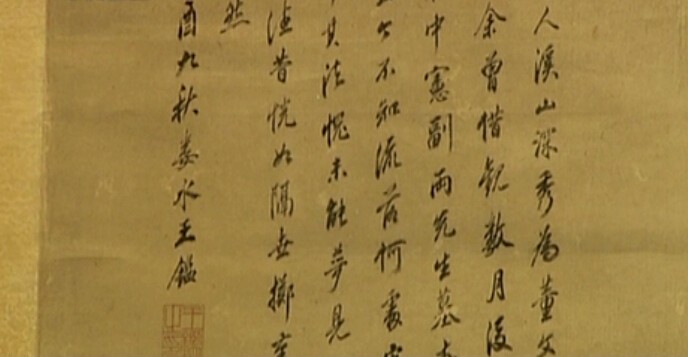 人溪山深秀為董文
余曾借觀數月後
中憲副兩先生墓
今不知流落何處
其法愧未能夢見
昔恍如隔世擲
然
酉九秋婁水王鑑